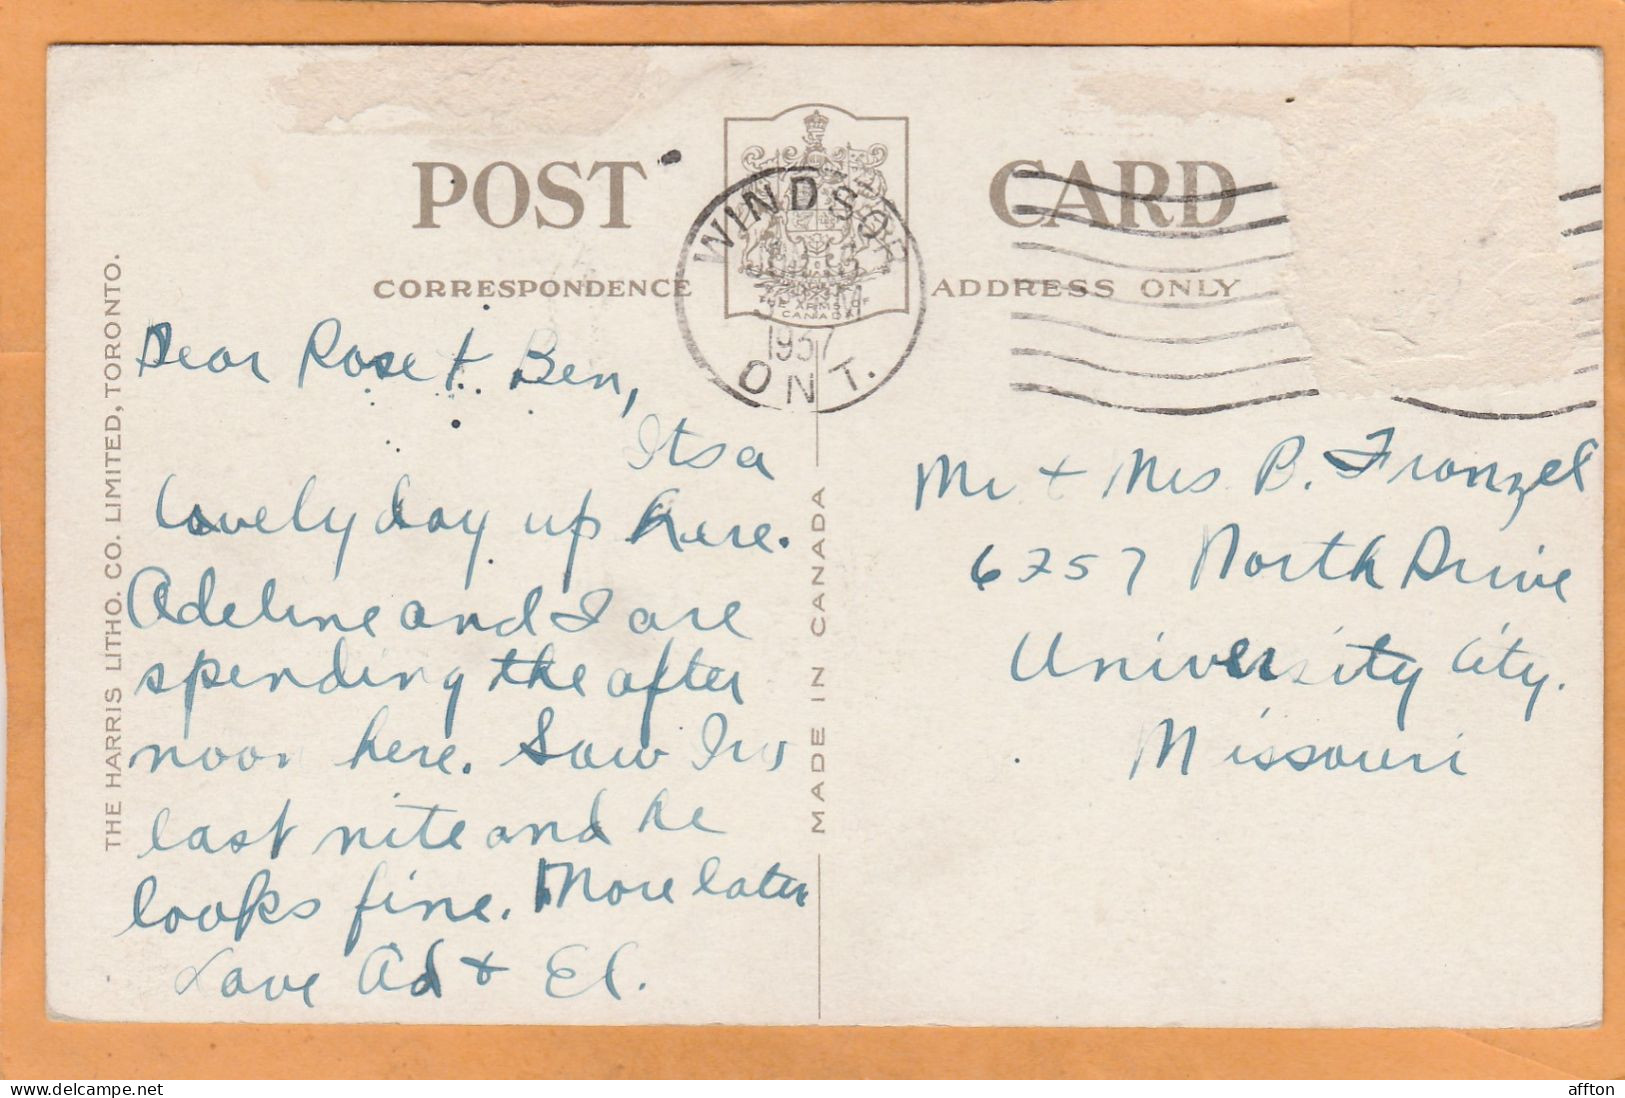 POST CARD
CORRESPONDENCE
ADDRESS ONLY
THE ARMS OF
CANADA
WINDSOR
M
1937
ONT.
THE HARRIS LITHO. CO. LIMITED, TORONTO.
MADE IN CANADA
Dear Rose + Ben,
Its a
lovely day up here.
Adeline and I are
spending the after
noon here. Saw Irv
last nite and he
looks fine. More later
Love Ad + El.
Mr + Mrs B. Franzel
6257 North Drive
University City.
Missouri
delcampe.net
affton